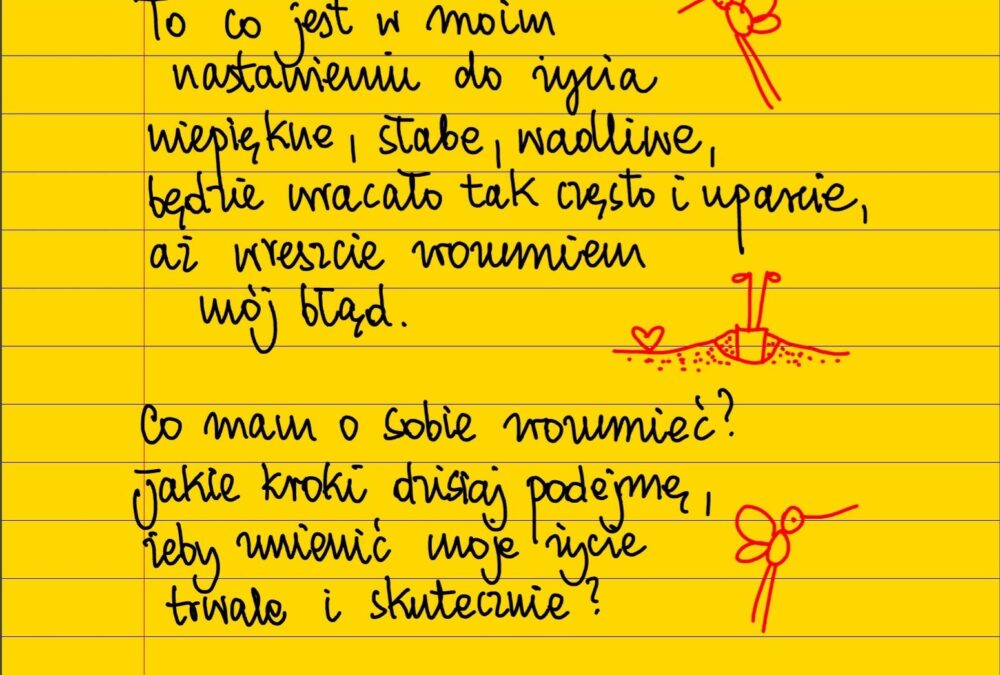 To co jest w moim
nastawieniu do życia
niepiękne, słabe, wadliwe,
będzie wracało tak często i uparcie,
aż wreszcie zrozumiem
mój błąd.
Co mam o sobie zrozumieć?
Jakie kroki dzisiaj podejmę,
żeby zmienić moje życie
trwale i skutecznie?